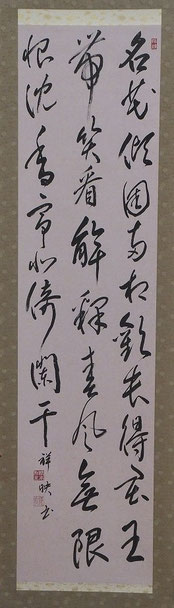 名花傾國両相歓長得君王
帶笑看解釋春風無限
恨沈香亭北倚闌干祥映書